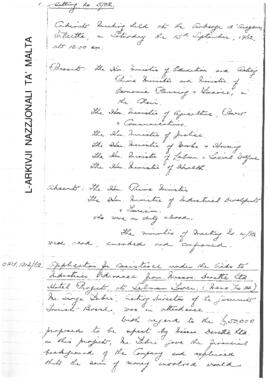 Meeting No. 5/62
Cabinet Meeting held at the Auberge d'Aragon,
Valletta, on Saturday the 15th September, 1962,
at 10.00 am.
Present: The Hon. Minister of Education and Acting
Prime Minister and Minister of
Economic Planning & Finance, in
the Chair.
The Hon. Minister of Agriculture, Power
& Communications.
The Hon. Minister of Justice
The Hon. Minister of Works & Housing
The Hon. Minister of Labour & Social Welfare
The Hon. Minister of Health
Absent: The Hon. Prime Minister
The Hon. Minister of Industrial Development
& Tourism.
who were on duty abroad.
The minutes of Meeting No 4/62
were read, amended and confirmed.
Application for assistance under the Aids to
Industries Ordinance from Messrs.
Hotel Project, at
Mr. , Acting Director of the Government
Tourist Board, was in attendance.
With regard to the £50,000
proposed to be spent by Messrs.
on this project, Mr. gave the financial
background of the Company and explained
that the sum of money involved would
L-ARKIVJI NAZZJONALI TA' MALTA